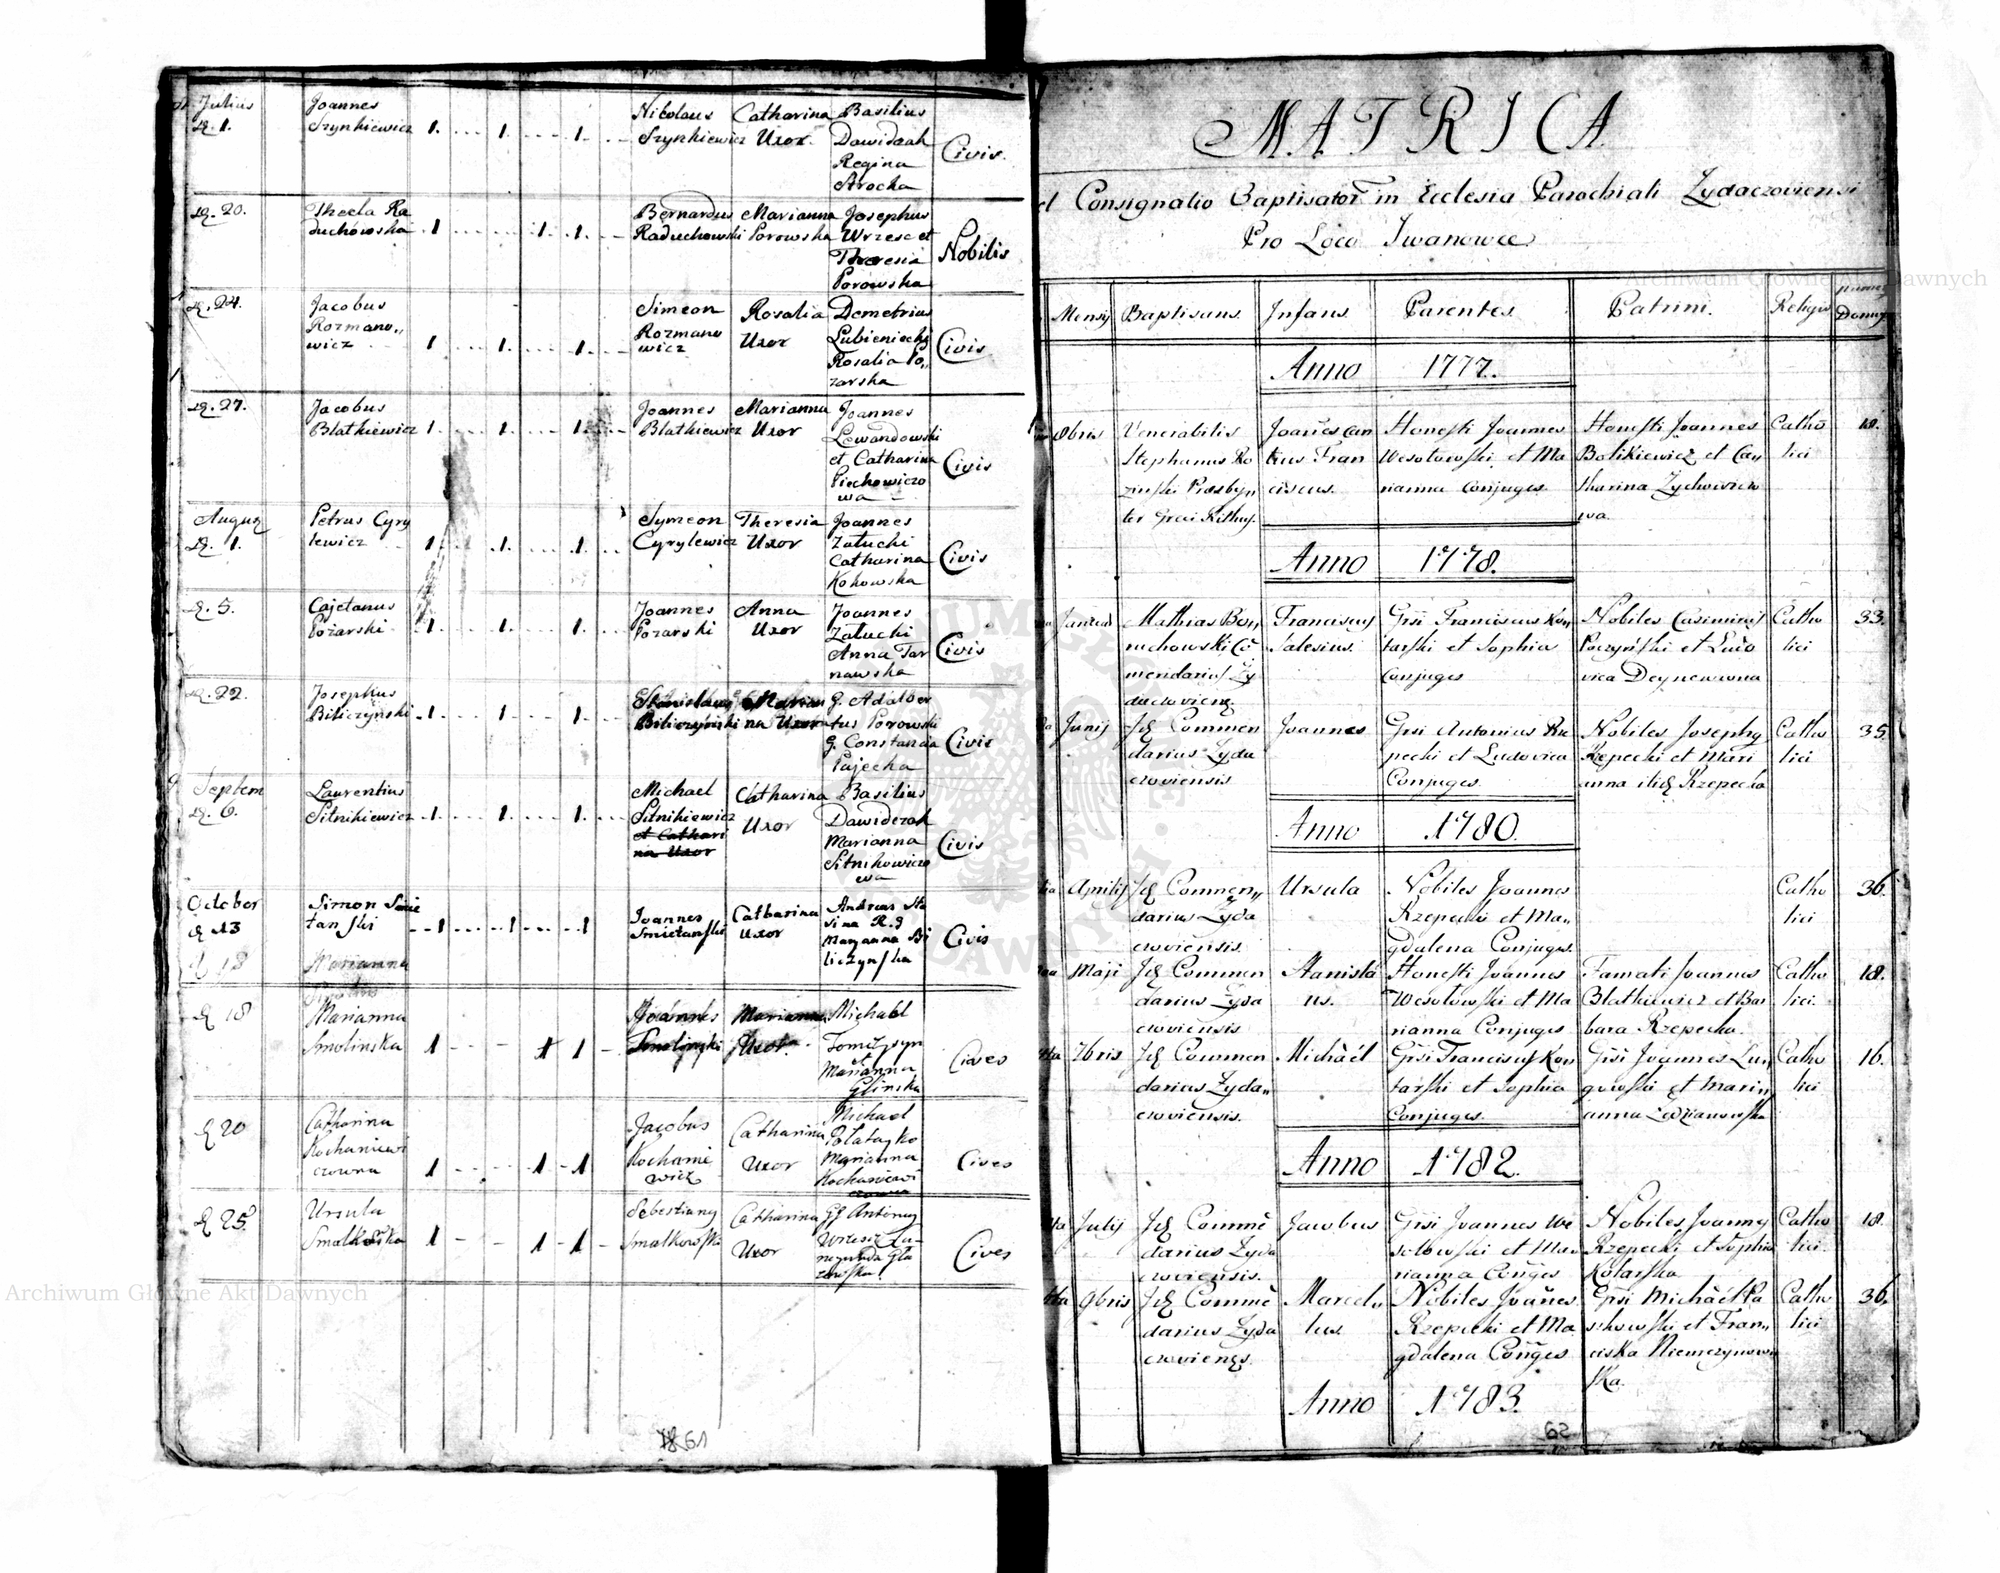 Julius
D. 1.
Joannes
Szynkiewicz 1. 1. 1.
Nicolaus
Szynkiewicz
Catharina
Uxor.
Basilius
Dawidzak
Regina
Srocka
Civis.
D. 20.
Thecla Ra
duchowska 1 1. 1.
Bernardus
Raduchowski
Marianna
Porowska
Josephus
Wrzesc et
Theresia
Porowska
Nobilis
D. 24.
Jacobus
Rozmano„
wicz 1 1. 1.
Simeon
Rozmano
wicz
Rosalia
Uxor
Demetrius
Lubieniecki
Rosalia Po„
zarska
Civis
D. 27.
Jacobus
Blatkiewicz 1. 1. 1.
Joannes
Blatkiewicz
Marianna
Uxor
Joannes
Lewandowski
et Catharina
Piechowiczo
wa
Civis
August
D. 1.
Petrus Cyry
lewicz 1. 1. 1.
Symeon
Cyrylewicz
Theresia
Uxor
Joannes
Załucki
Catharina
Kokowska
Civis
D. 5.
Cajetanus
Pożarski 1. 1. 1.
Joannes
Pozarski
Anna
Uxor
Joannes
Załucki
Anna Tar
nawska
Civis
D. 22.
Josephus
Biliczyński 1. 1. 1.
Stanislaus
Biliczyński
Marian
na Uxor
G. Adalber
tus Porowski
G. Constancia
Pajecka
Civis
Septem
D. 6.
Laurentius
Sitnikiewicz 1. 1. 1.
Michael
Sitnikiewicz
et Cathari
na Uxor
Catharina
Uxor
Basilius
Dawidczak
Marianna
Sitnikowiczo
wa
Civis
October
D 13
Simon Smie
tanski 1 1 1
Joannes
Smietanski
Catharina
Uxor
Andreas
Marianna Bi
liczynska
Civis
D 18
Marianna
D 18
Marianna
Smolinska 1 1 1
Joannes
Smolinski
Marianna
Uxor
Michael
et
Marianna
Glinska
Cives
D 20
Catharina
Kochaniewi
czowna 1 1 1
Jacobus
Kochanie
wicz
Catharina
Uxor
Michael
Marianna
Kochaniewi
czowna
Cives
D 25
Ursula
Smalkowska 1 1 1
Sebestiany
Smalkowski
Catharina
Uxor
GG Antony
Cives
61
MATRICA
et Consignatio Baptisator in Ecclesia Parochiali Zydaczoviensi
Pro Loco Iwanowce
Mensis Baptisans. Infans. Parentes. Patrini. Religio Domus
Anno 1777.
8bris
Venerabilis
Stephanus Ro
zinski Præsby„
ter Græi Rithus.
Joañes Can
tius Fran
ciscus.
Honesti Joannes
Wesołowski et Ma
rianna Conjuges.
Honesti Joannes
Bolikiewicz et Ca
tharina Zychowicw
wa.
Catho
lici
18.
Anno 1778.
Januarii
Mathias Bo„
ruchowski Cō
mendarius Zy
daczoviens.
Franciscus
Salesius.
Grsi Franciscus Kon
tarski et Sophia
Conjuges
Nobiles Casimirus
Poczyński et Ludo
vica Deynewna
Catho
lici
33.
Junij
Id Commen
darius Zyda
czoviensis
Joannes
Grsi Antonius Rze
pecki et Ludovica
Conjuges.
Nobiles Josephus
Rzepecki et Mari
anna Rzepecka
Catho
lici
35.
Anno 1780.
Aprilis
Id Commen„
darius Zyda
czoviensis.
Ursula
Nobiles Joannes
Rzepecki et Ma„
gdalena Conjuges.
Catho
lici
36.
Maji
Id Commen
darius Zyda
czoviensis
Stanisla
us.
Honesti Joannes
Wesołowski et Ma
rianna Conjuges
Famati Joannes
Blatkiewicz et Bar
bara Rzepecka.
Catho
lici.
18.
7bris
Id Commen
darius Zyda„
czoviensis.
Michaël
Grsi Franciscus Kon
tarski et Sophia
Conjuges.
Grsi Joannes Lun„
gowski et Marin„
anna
Catho
lici
16.
Anno 1782.
Julij
Id Commē
darius Zyda
czoviensis.
Jacobus
Grsi Joannes We
sołowski et Ma
rianna Conges
Nobiles Joannes
Rzepecki et Sophia
Kotarska
Catho
lici.
18.
9bris
Id Commē
darius Zyda
czoviens.
Marcel„
lus.
Nobiles Joañes
Rzepecki et Ma
gdalena Conges
Grsi Michaël Pa
szkowski et Fran„
ciska Niemczynow
ska.
Catho
lici
36.
Anno 1783.
62
Archiwum Główne Akt Dawnych
Archiwum Główne Akt Dawnych